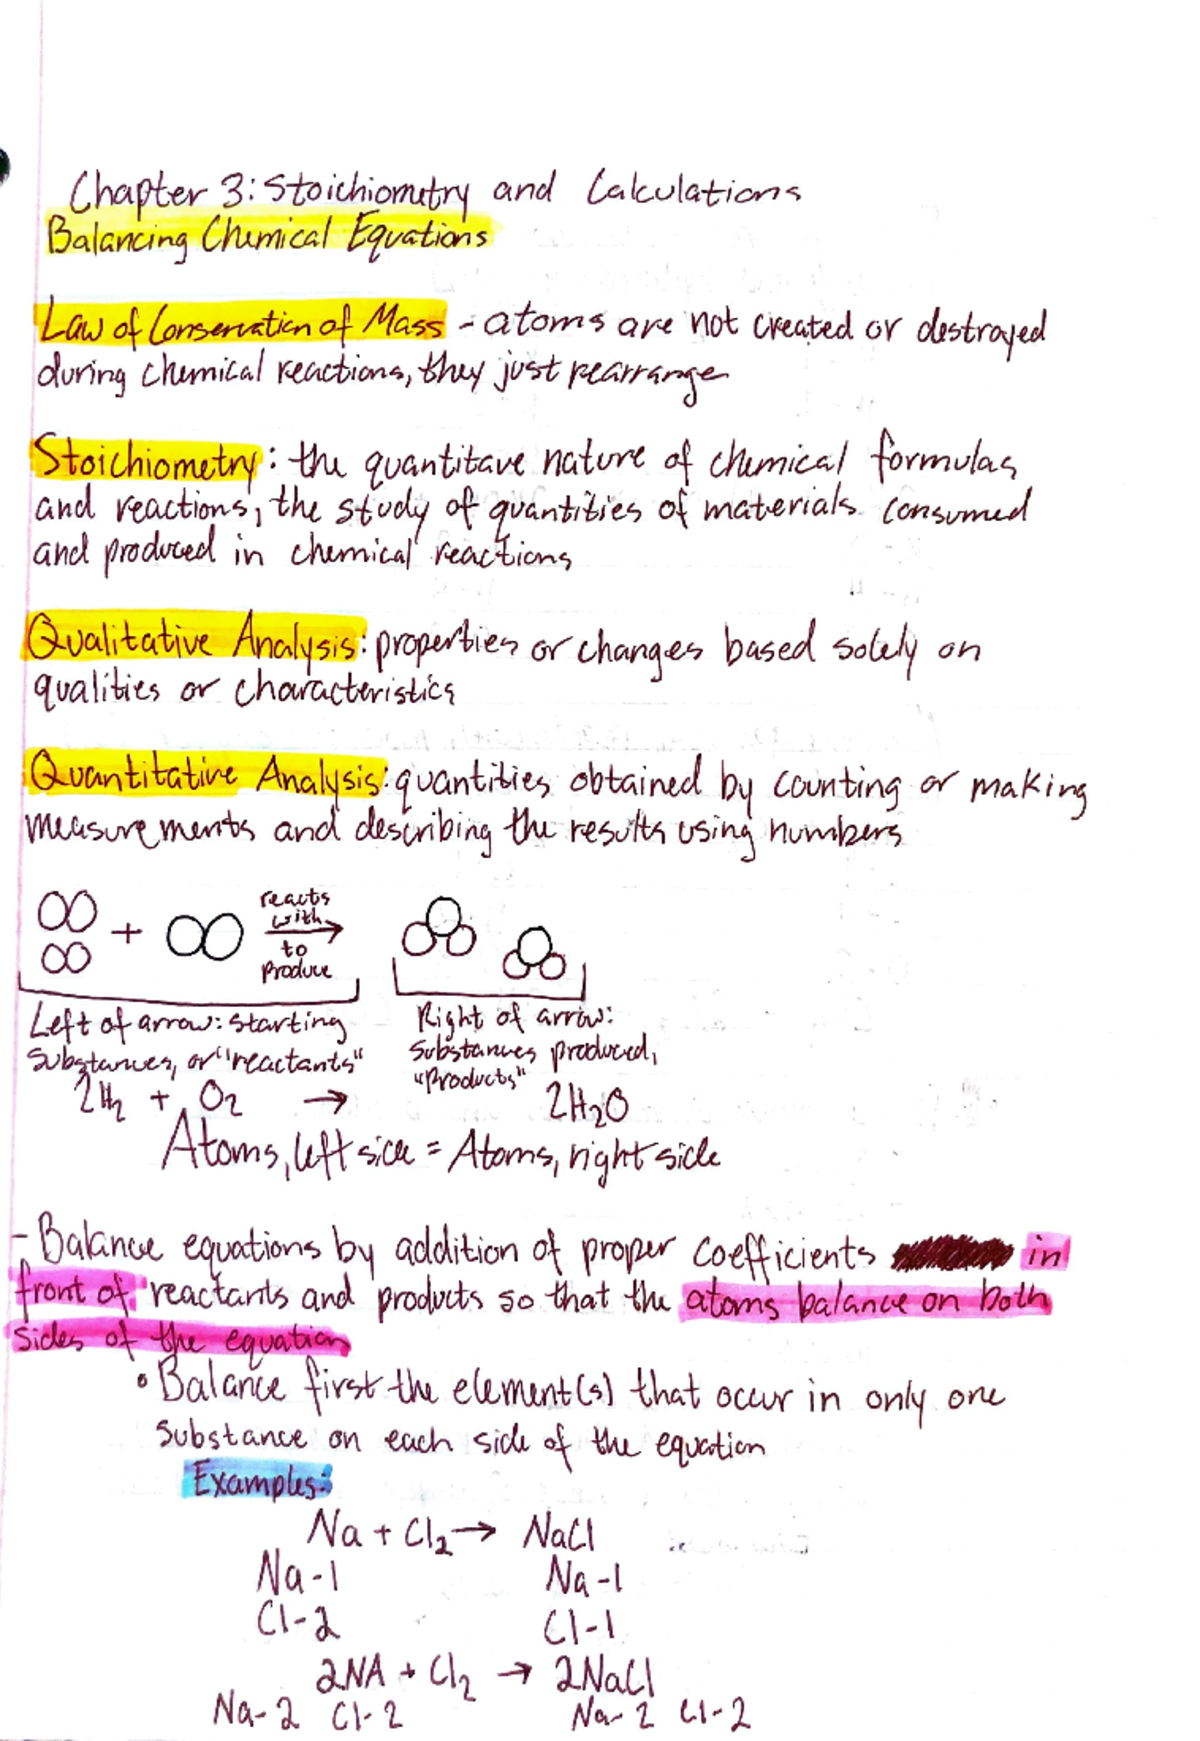 Chapter 3: Stoichiometry and Calculations
Balancing Chemical Equations
Law of Conservation of Mass - atoms are not created or destroyed
during chemical reactions, they just rearrange
Stoichiometry: the quantitave nature of chemical formulas
and reactions, the study of quantities of materials consumed
and produced in chemical reactions
Qualitative Analysis: properties or changes based solely on
qualities or characteristics
Quantitative Analysis: quantities obtained by counting or making
measurements and describing the results using numbers
+ reacts
with
to
produce
Left of arrow: starting
substances, or "reactants"
Right of arrow:
substances produced,
"products"
2H₂ + O₂ → 2H₂O
Atoms, left side = Atoms, right side
- Balance equations by addition of proper coefficients in
front of reactants and products so that the atoms balance on both
sides of the equation
• Balance first the element(s) that occur in only one
substance on each side of the equation
Examples:
Na + Cl₂ → NaCl
Na-1 Na-1
Cl-2 Cl-1
2NA + Cl₂ → 2NaCl
Na-2 Cl-2 Na-2 Cl-2